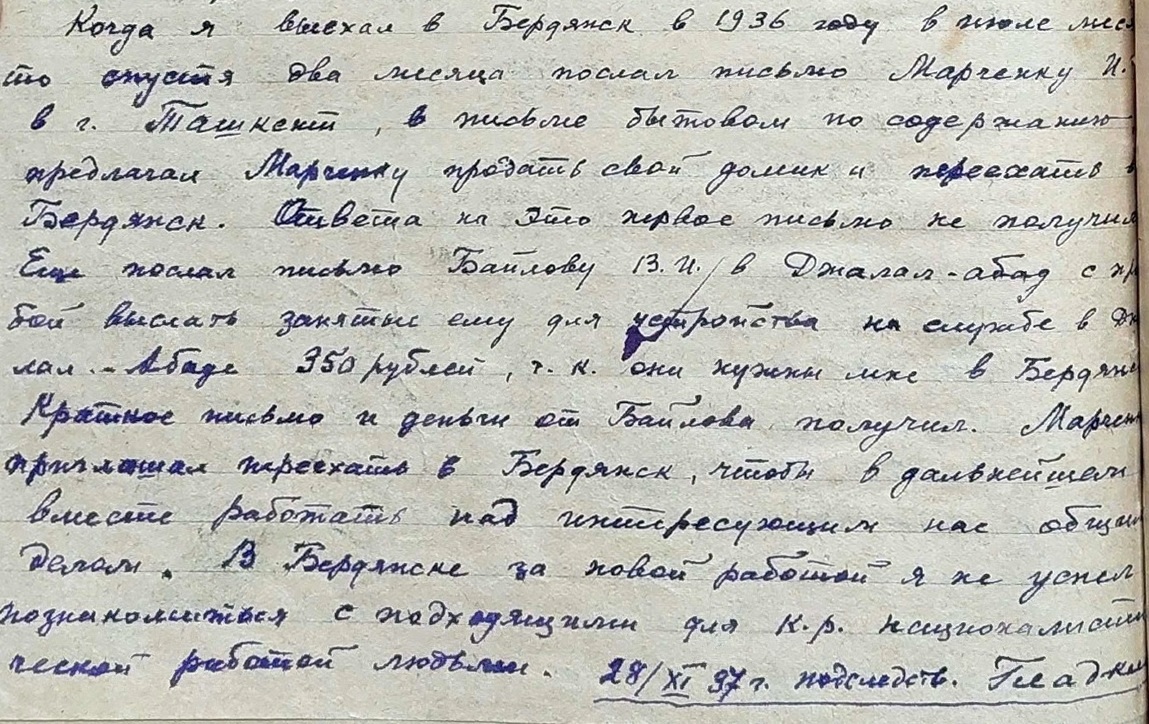 Когда я выехал в Бердянск в 1936 году в июле мес
то спустя два месяца послал письмо Марченку И.
в г. Ташкент, в письме бытовом по содержанию
предлагал Марченку продать свой домик и переехать в
Бердянск. Ответа на это первое письмо не получил
Еще послал письмо Байлову В. И. / в Джалал-абад с пр
бой выслать занятые ему для устройства на службе в Дж
лал-Абаде 350 рублей, т. к. они нужны мне в Бердянс
Краткое письмо и деньги от Байлова получил. Марчен
приглашал переехать в Бердянск, чтобы в дальнейшем
вместе работать над интересующим нас общим
делом. В Бердянске за новой работой я не успел
познакомиться с подходящими для к.р. националисти
ческой работой людьми. 28/XI 37 г. подследств. Гладки